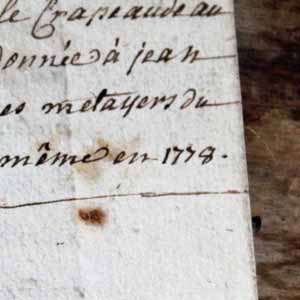 le Crapeaude au
donnée à jean
es metayers du
même en 1778.